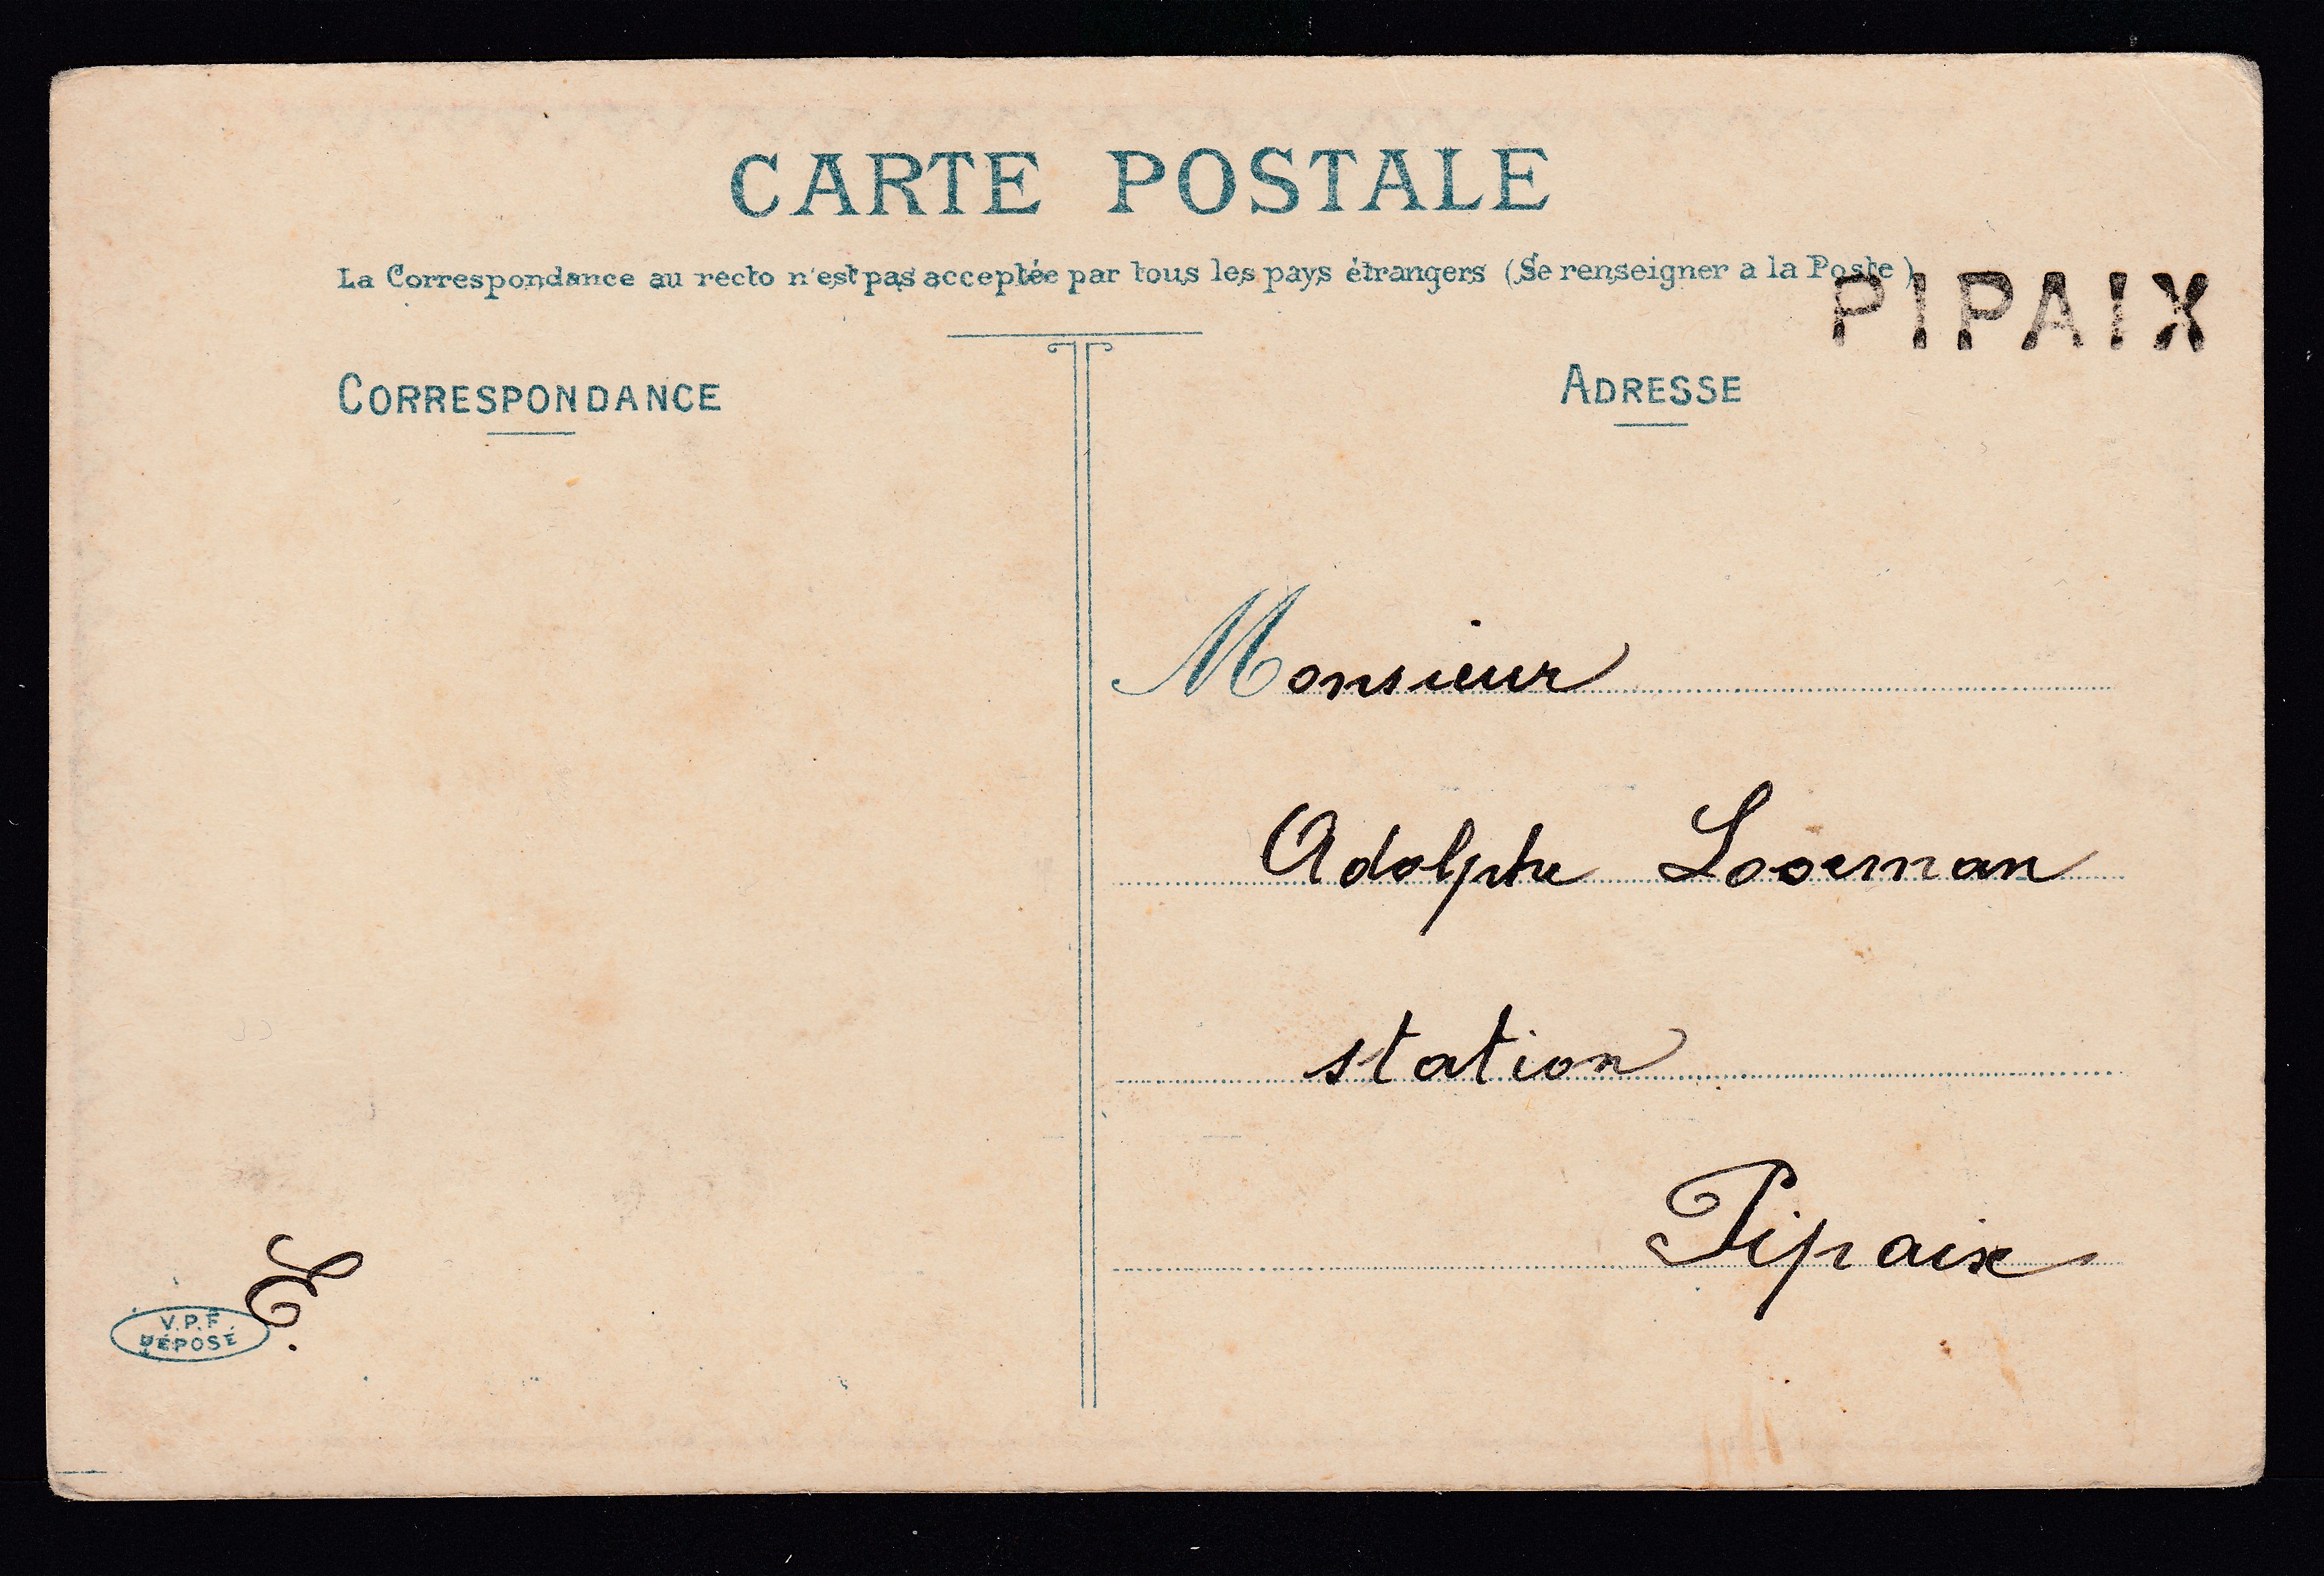 CARTE POSTALE
La Correspondance au recto n'est pas acceptée par tous les pays étrangers (Se renseigner a la Poste)
PIPAIX
CORRESPONDANCE
ADRESSE
Monsieur
Adolphe Looeman
station
Pipaix
L E.
V.P.F.
DÉPOSÉ